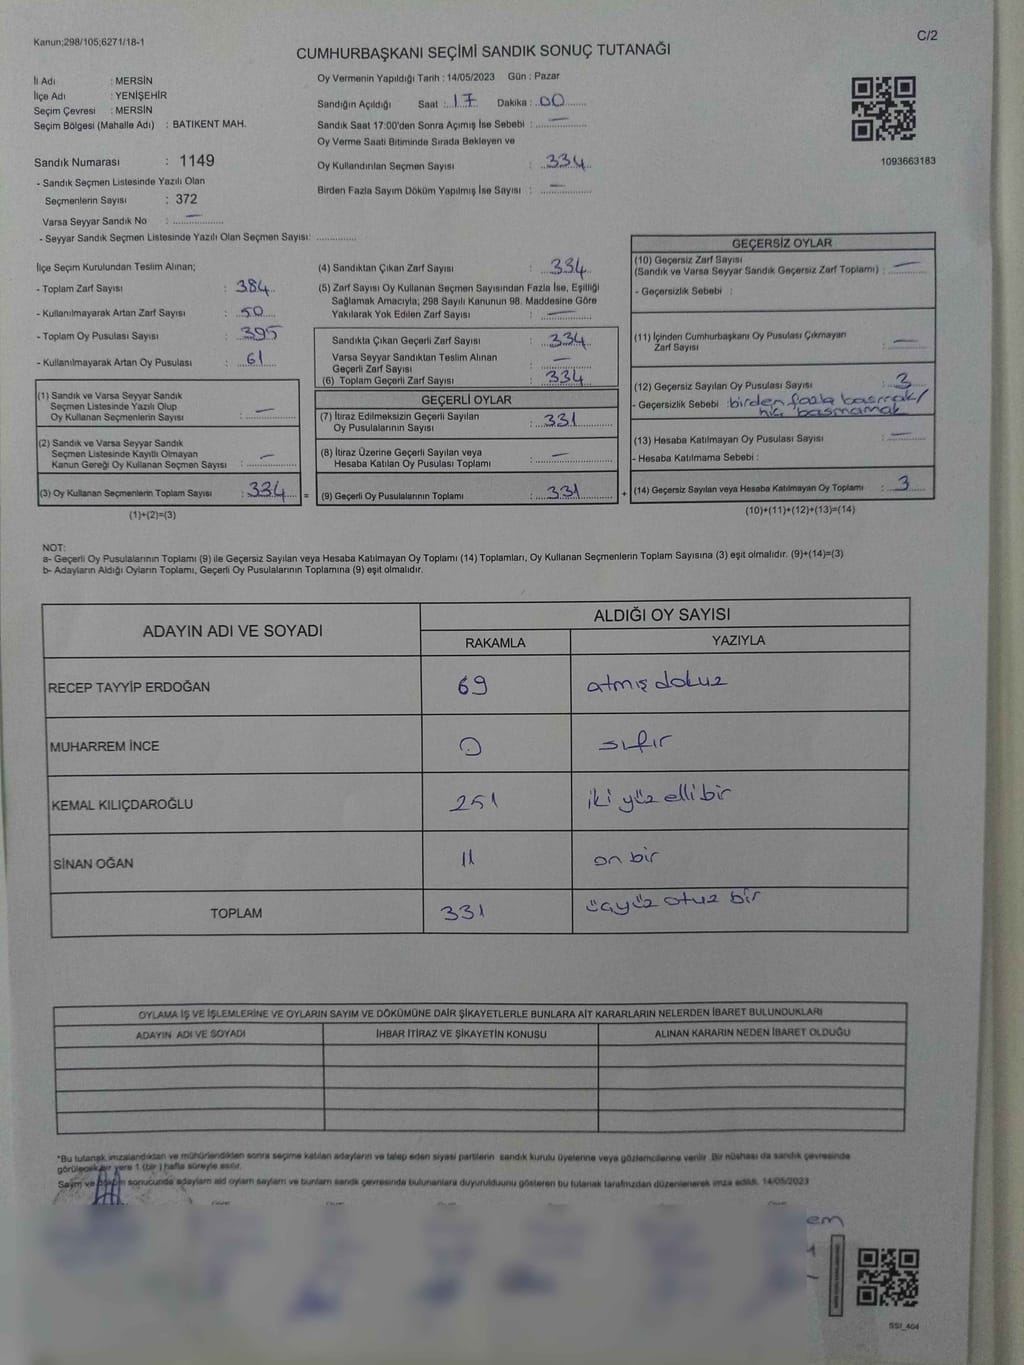 Kanun;298/105;6271/18-1
C/2
CUMHURBAŞKANI SEÇİMİ SANDIK SONUÇ TUTANAĞI
İl Adı : MERSİN
İlçe Adı : YENİŞEHİR
Seçim Çevresi : MERSİN
Seçim Bölgesi (Mahalle Adı) : BATIKENT MAH.
Sandık Numarası : 1149
- Sandık Seçmen Listesinde Yazılı Olan
Seçmenlerin Sayısı : 372
Varsa Seyyar Sandık No : —
- Seyyar Sandık Seçmen Listesinde Yazılı Olan Seçmen Sayısı: ..............
Oy Vermenin Yapıldığı Tarih : 14/05/2023 Gün : Pazar
Sandığın Açıldığı Saat : 17 Dakika : 00
Sandık Saat 17:00'den Sonra Açımış İse Sebebi : —
Oy Verme Saati Bitiminde Sırada Bekleyen ve
Oy Kullandırılan Seçmen Sayısı : 334
Birden Fazla Sayım Döküm Yapılmış İse Sayısı : —
1093663183
İlçe Seçim Kurulundan Teslim Alınan;
- Toplam Zarf Sayısı : 384
- Kullanılmayarak Artan Zarf Sayısı : 50
- Toplam Oy Pusulası Sayısı : 395
- Kullanılmayarak Artan Oy Pusulası : 61
(1) Sandık ve Varsa Seyyar Sandık
Seçmen Listesinde Yazılı Olup
Oy Kullanan Seçmenlerin Sayısı : —
(2) Sandık ve Varsa Seyyar Sandık
Seçmen Listesinde Kayıtlı Olmayan
Kanun Gereği Oy Kullanan Seçmen Sayısı : —
(3) Oy Kullanan Seçmenlerin Toplam Sayısı : 334 =
(1)+(2)=(3)
(4) Sandıktan Çıkan Zarf Sayısı : 334
(5) Zarf Sayısı Oy Kullanan Seçmen Sayısından Fazla İse, Eşitliği
Sağlamak Amacıyla; 298 Sayılı Kanunun 98. Maddesine Göre
Yakılarak Yok Edilen Zarf Sayısı : —
Sandıkta Çıkan Geçerli Zarf Sayısı : 334
Varsa Seyyar Sandıktan Teslim Alınan
Geçerli Zarf Sayısı : —
(6) Toplam Geçerli Zarf Sayısı : 334
GEÇERLİ OYLAR
(7) İtiraz Edilmeksizin Geçerli Sayılan
Oy Pusulalarının Sayısı : 331
(8) İtiraz Üzerine Geçerli Sayılan veya
Hesaba Katılan Oy Pusulası Toplamı : —
(9) Geçerli Oy Pusulalarının Toplamı : 331 +
GEÇERSİZ OYLAR
(10) Geçersiz Zarf Sayısı
(Sandık ve Varsa Seyyar Sandık Geçersiz Zarf Toplamı) : —
- Geçersizlik Sebebi :
(11) İçinden Cumhurbaşkanı Oy Pusulası Çıkmayan
Zarf Sayısı : —
(12) Geçersiz Sayılan Oy Pusulası Sayısı : 3
- Geçersizlik Sebebi : birden fazla basmak/
hiç basmamak
(13) Hesaba Katılmayan Oy Pusulası Sayısı : —
- Hesaba Katılmama Sebebi :
(14) Geçersiz Sayılan veya Hesaba Katılmayan Oy Toplamı : 3
(10)+(11)+(12)+(13)=(14)
NOT:
a- Geçerli Oy Pusulalarının Toplamı (9) ile Geçersiz Sayılan veya Hesaba Katılmayan Oy Toplamı (14) Toplamları, Oy Kullanan Seçmenlerin Toplam Sayısına (3) eşit olmalıdır. (9)+(14)=(3)
b- Adayların Aldığı Oyların Toplamı, Geçerli Oy Pusulalarının Toplamına (9) eşit olmalıdır.
ADAYIN ADI VE SOYADI ALDIĞI OY SAYISI
RAKAMLA YAZIYLA
RECEP TAYYİP ERDOĞAN 69 atmış dokuz
MUHARREM İNCE 0 sıfır
KEMAL KILIÇDAROĞLU 251 iki yüz elli bir
SİNAN OĞAN 11 on bir
TOPLAM 331 üçyüz otuz bir
OYLAMA İŞ VE İŞLEMLERİNE VE OYLARIN SAYIM VE DÖKÜMÜNE DAİR ŞİKAYETLERLE BUNLARA AİT KARARLARIN NELERDEN İBARET BULUNDUKLARI
ADAYIN ADI VE SOYADI İHBAR İTİRAZ VE ŞİKAYETİN KONUSU ALINAN KARARIN NEDEN İBARET OLDUĞU
*Bu tutanak imzalandıktan ve mühürlendikten sonra seçime katılan adayların ve talep eden siyasi partilerin sandık kurulu üyelerine veya gözlemcilerine verilir. Bir nüshası da sandık çevresinde
görülecek bir yere 1 (bir ) hafta süreyle asılır.
Sayım ve döküm sonucunda adayların ald oyların sayılarn ve bunların sandık çevresinde bulunanlara duyurulduunu gösteren bu tutanak tarafımızdan düzenlenerek imza edildi. 14/05/2023
em
SSI_404